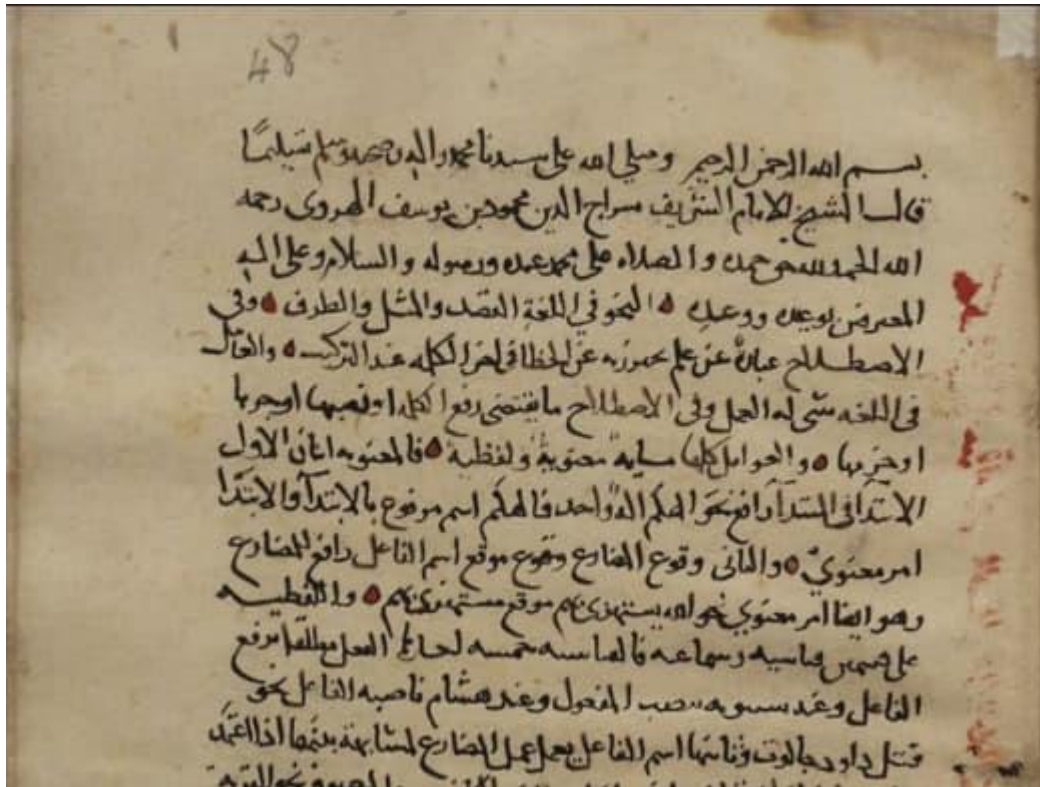 48
بسم الله الرحمن الرحيم وصلي الله علي سيدنا محمد واله وصحبه وسلم تسليمًا
قال الشيخ الامام الشريف سراج الدين محمود بن يوسف الهروى رحمه
الله الحمد لله حق حمده والصلاه على محمد عبده ورسوله والسلام وعلى اله
بوعده ووعيده النحو في اللغة القصد والمثل والطرف وفي
الاصطلاح عبارة عن علم يحترز به عن الخطا في اخر الكلمه عند التركيب والعامل
في اللغه شي له العمل وفي الاصطلاح ما يقتضى رفع الكلمه او نصبها او جرها
او جزمها والعوامل كلها مايه معنوية ولفظية فالمعنويه اثنان الاول
الابتدا في المبتدأ رافع نحو الهكم اله واحد فالهكم اسم مرفوع بالابتدآ والابتدا
امر معنويٌ والثانى وقوع المضارع وقوع موقع اسم الفاعل رافع للمضارع
وهو ايضا امر معنوي نحو الله يستهزئ بهم موقع مستهزئ بهم واللفظيه
على قسمين قياسيه وسماعيه فالقياسيه خمسه احدها الفعل مطلقا يرفع
الفاعل وعند سيبويه ينصب المفعول وعند هشام ناصبه الفاعل نحو
قتل داود جالوت وثانيها اسم الفاعل يعمل عمل المضارع لمشابهة بينهما اذا اعتمد